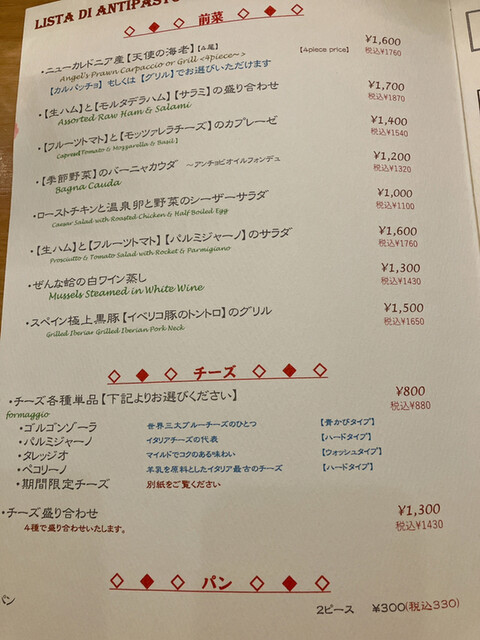 LISTA DI ANTIPASTO
◇ ◆ ◇ 前菜 ◇ ◆ ◇
・ニューカレドニア産【天使の海老】【4尾】 ¥1,600
Angel's Prawn Carpaccio or Grill <4piece~> 【4piece price】 税込¥1760
【カルパッチョ】もしくは【グリル】でお選びいただけます
・【生ハム】と【モルタデラハム】【サラミ】の盛り合わせ ¥1,700
Assorted Raw Ham & Salami 税込¥1870
・【フルーツトマト】と【モッツァレラチーズ】のカプレーゼ ¥1,400
Caprese【Tomato & Mozzarella & Basil】 税込¥1540
・【季節野菜】のバーニャカウダ ～アンチョビオイルフォンデュ ¥1,200
Bagna Cauda 税込¥1320
・ローストチキンと温泉卵と野菜のシーザーサラダ ¥1,000
Caesar Salad with Roasted Chicken & Half Boiled Egg 税込¥1100
・【生ハム】と【フルーツトマト】【パルミジャーノ】のサラダ ¥1,600
Prosciutto & Tomato Salad with Rocket & Parmigiano 税込¥1760
・ぜんな蛤の白ワイン蒸し ¥1,300
Mussels Steamed in White Wine 税込¥1430
・スペイン極上黒豚【イベリコ豚のトントロ】のグリル ¥1,500
Grilled Iberias Grilled Iberian Pork Neck 税込¥1650
◇ ◆ ◇ チーズ ◇ ◆ ◇
・チーズ各種単品【下記よりお選びください】 ¥800
formaggio 税込¥880
・ゴルゴンゾーラ 世界三大ブルーチーズのひとつ 【青かびタイプ】
・パルミジャーノ イタリアチーズの代表 【ハードタイプ】
・タレッジオ マイルドでコクのある味わい 【ウォッシュタイプ】
・ペコリーノ 羊乳を原料としたイタリア最古のチーズ 【ハードタイプ】
・期間限定チーズ 別紙をご覧ください
・チーズ盛り合わせ ¥1,300
4種で盛り合わせいたします。 税込¥1430
◇ ◆ ◇ パン ◇ ◆ ◇
パン 2ピース ¥300(税込330)